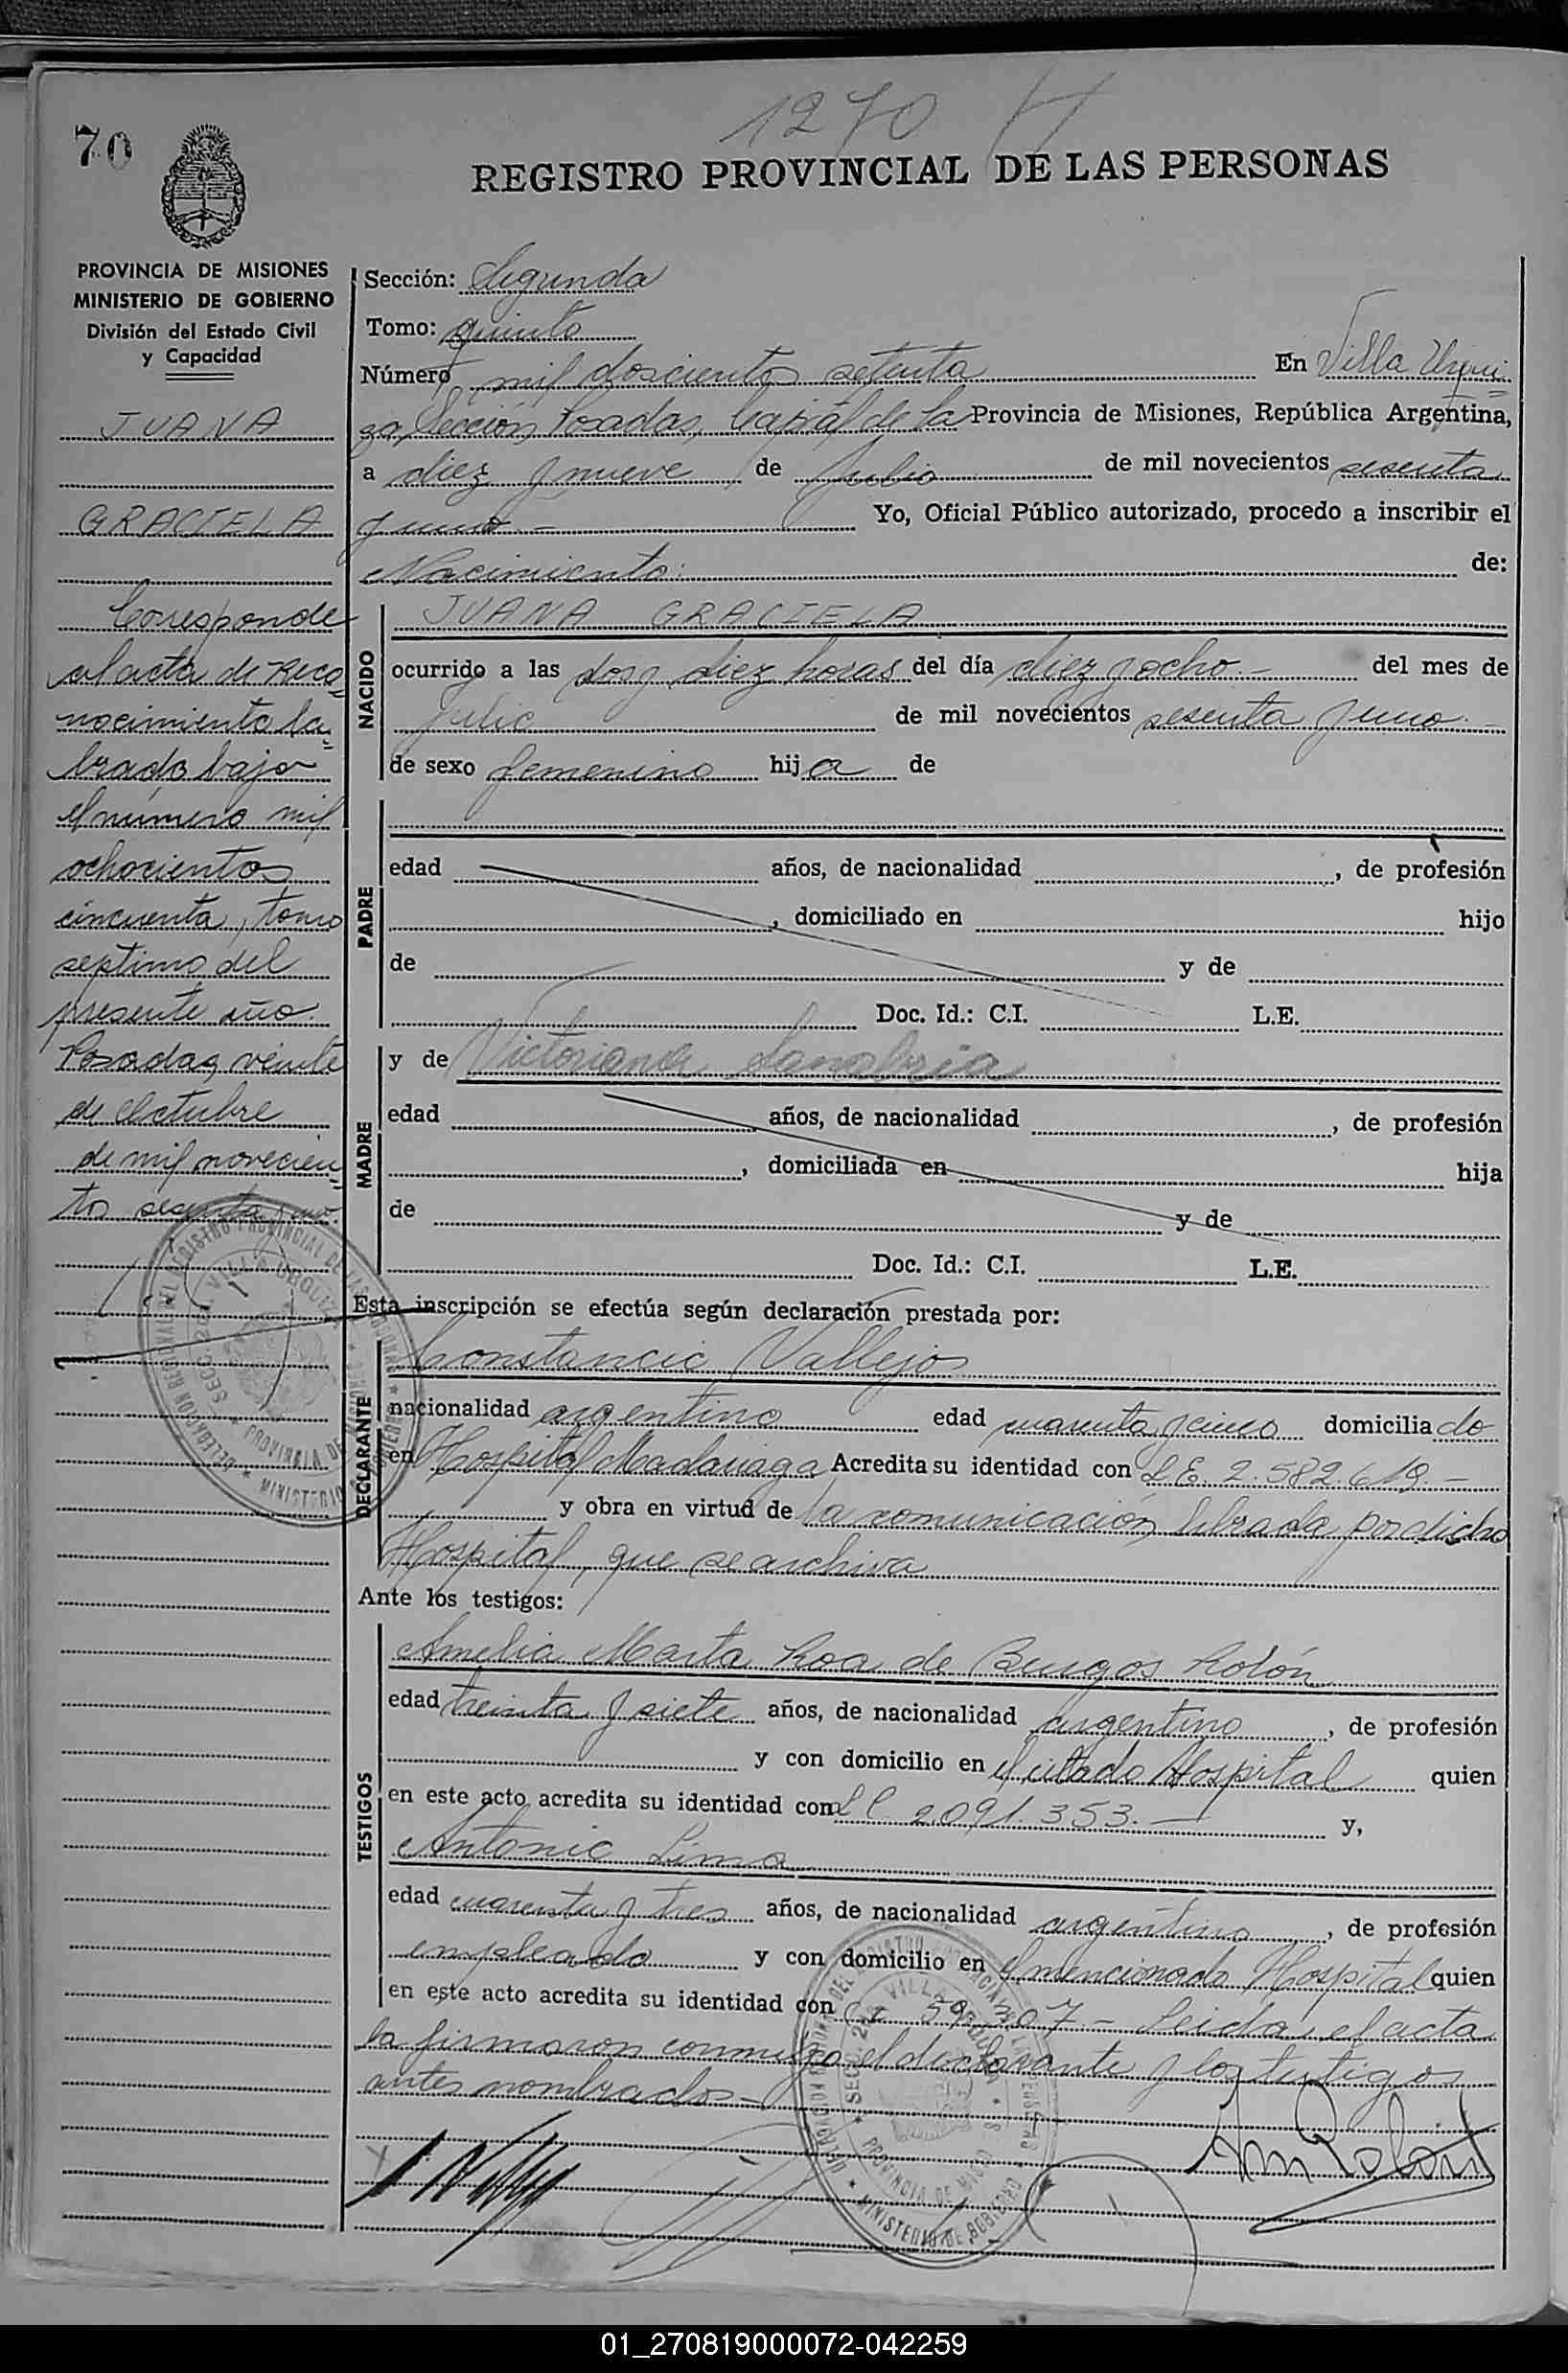 1270
70
REGISTRO PROVINCIAL DE LAS PERSONAS
PROVINCIA DE MISIONES
MINISTERIO DE GOBIERNO
División del Estado Civil
y Capacidad
JUANA
GRACIELA
Corresponde
al acta de Reco=
nocimiento la=
brado bajo
el número mil
ochocientos
cincuenta, tomo
septimo del
presente año.
Posadas, veinte
de Octubre
de mil novecien=
tos sesenta y uno.
Sección: Segunda
Tomo: quinto
Número mil doscientos setenta En Villa Urqui=
za, Sección Posadas, Capital de la Provincia de Misiones, República Argentina,
a diez y nueve de Julio de mil novecientos sesenta
y uno.- Yo, Oficial Público autorizado, procedo a inscribir el
Nacimiento: de:
NACIDO
JUANA GRACIELA
ocurrido a las dos y diez horas del día diez y ocho.- del mes de
julio de mil novecientos sesenta y uno.-
de sexo femenino hija de
PADRE
edad años, de nacionalidad , de profesión
, domiciliado en hijo
de y de
Doc. Id.: C.I. L.E.
MADRE
y de Victoriana Sanabria
edad años, de nacionalidad , de profesión
, domiciliada en hija
de y de
Doc. Id.: C.I. L.E.
Esta inscripción se efectúa según declaración prestada por:
DECLARANTE
Constancio Vallejos
nacionalidad argentino edad cuarenta y cinco domiciliado
en Hospital Madariaga Acredita su identidad con L.E. 2.582.619.-
y obra en virtud de la comunicación librada por dicho
Hospital, que se archiva
Ante los testigos:
TESTIGOS
Amelia Marta Roa de Burgos Rolón
edad treinta y siete años, de nacionalidad argentino, de profesión
y con domicilio en el citado Hospital quien
en este acto acredita su identidad con LC 2.091.353.- y,
Antonio Lima
edad cuarenta y tres años, de nacionalidad argentino, de profesión
empleado y con domicilio en el mencionado Hospital quien
en este acto acredita su identidad con 59.207.- Leida el acta
la firmaron conmigo el declarante y los testigos
antes nombrados.-
01_270819000072-042259